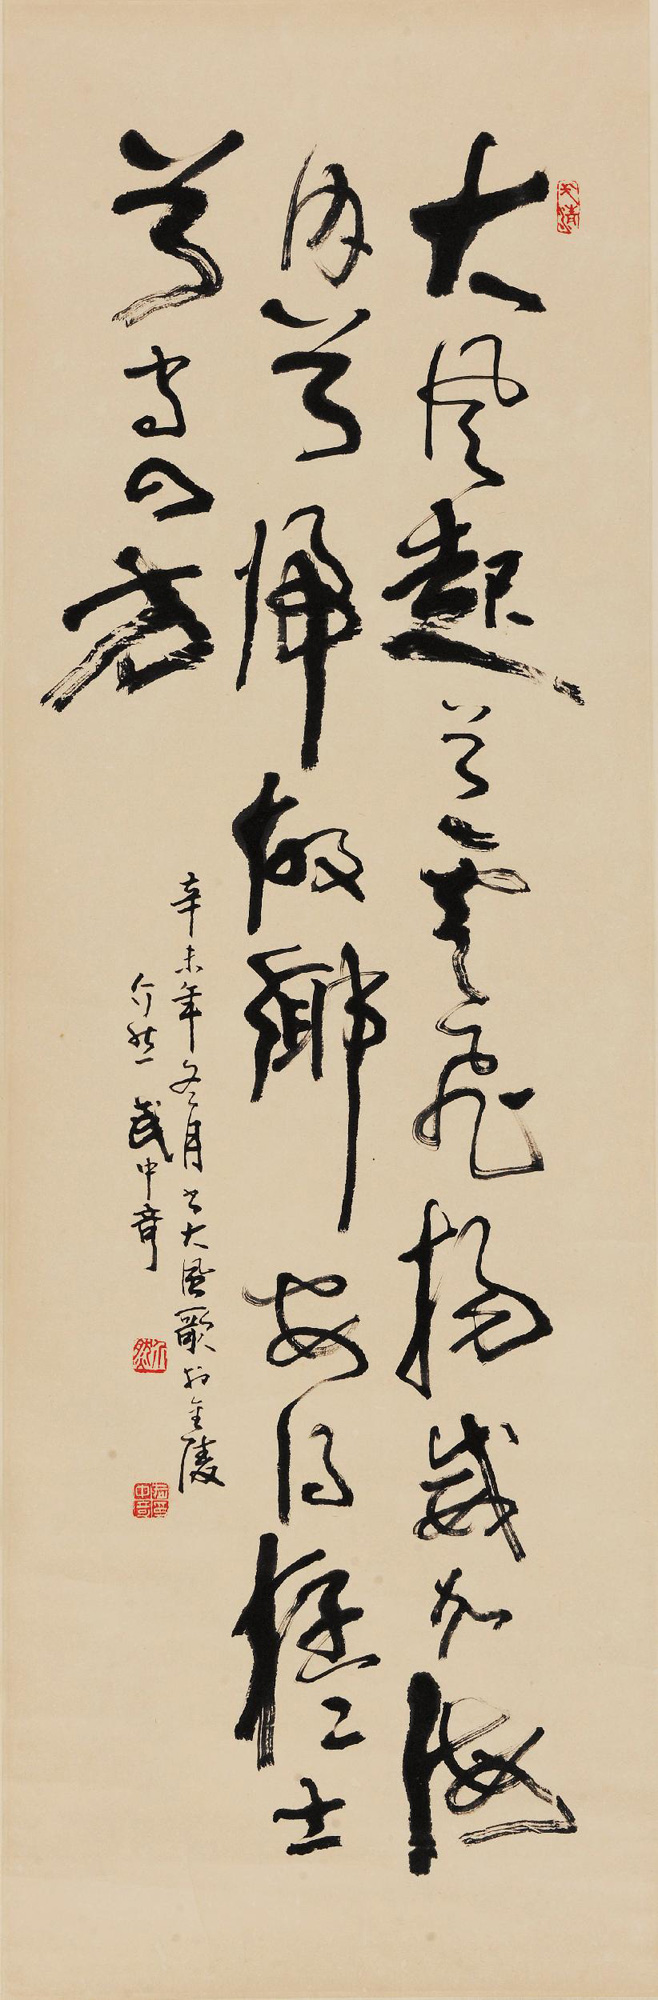 大風起兮雲飛揚威加海
内兮歸故鄉安得猛士
兮守四方
辛未年冬月書大風歌於金陵
介然武中奇
介然
武中奇